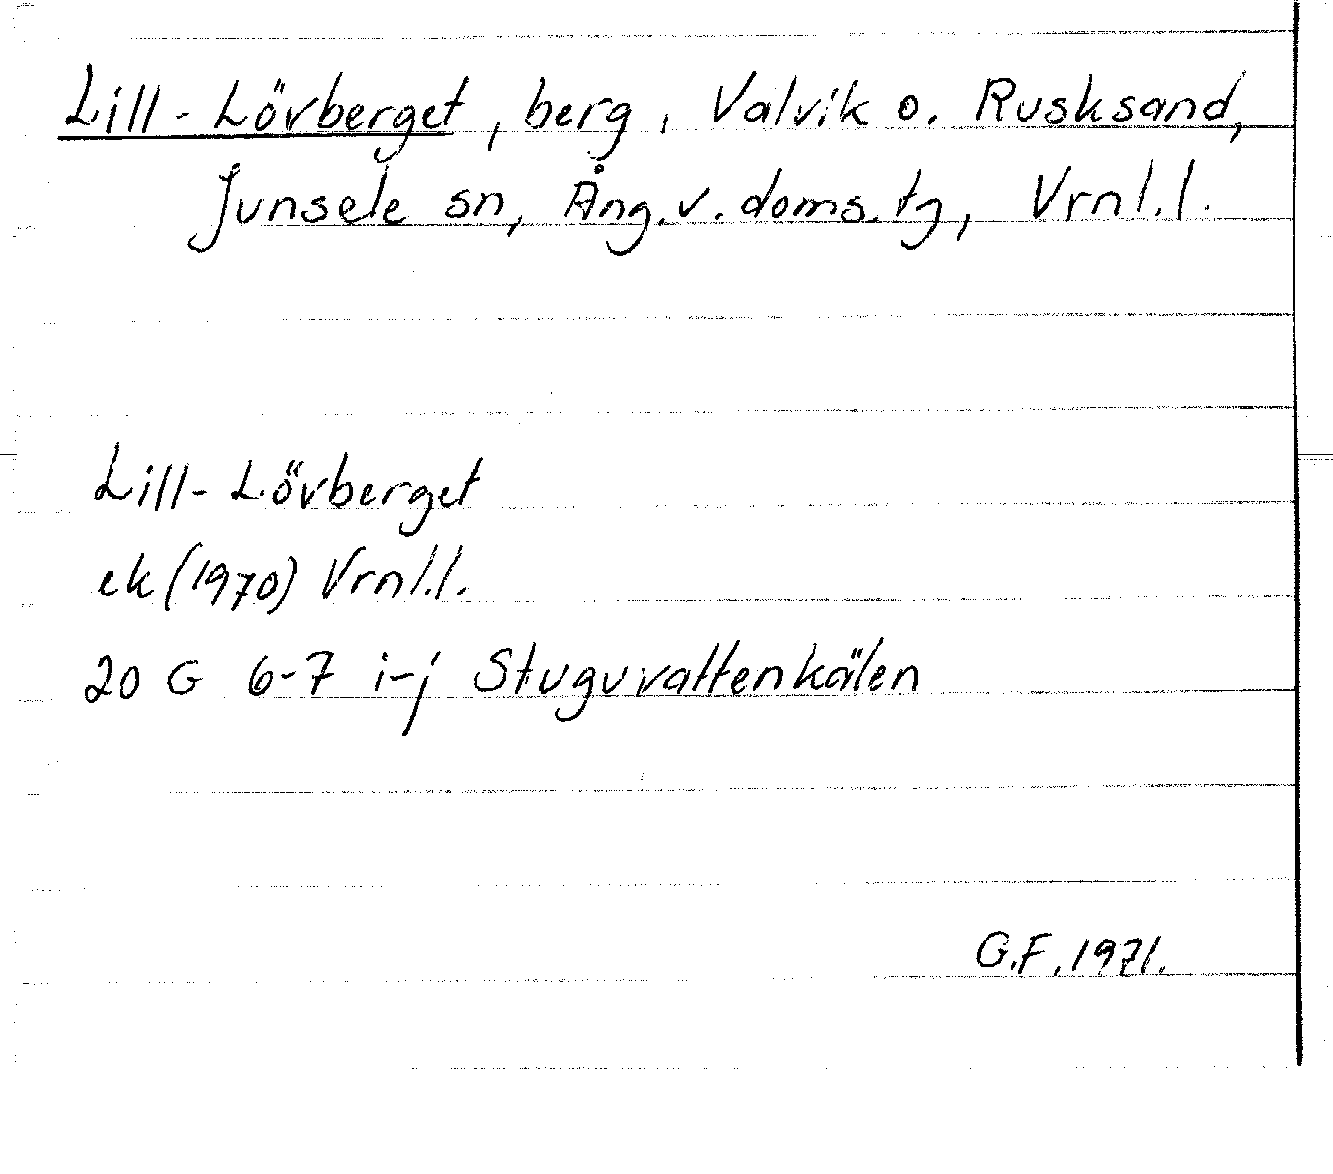 Lill-Lövberget, berg, Valvik o. Rusksand,
Junsele sn, Ång.v.doms.tg, Vrnl.l.
Lill-Lövberget
ek (1970) Vrnl.l.
20 G 6-7 i-j Stuguvattenkälen
G.F. 1971.